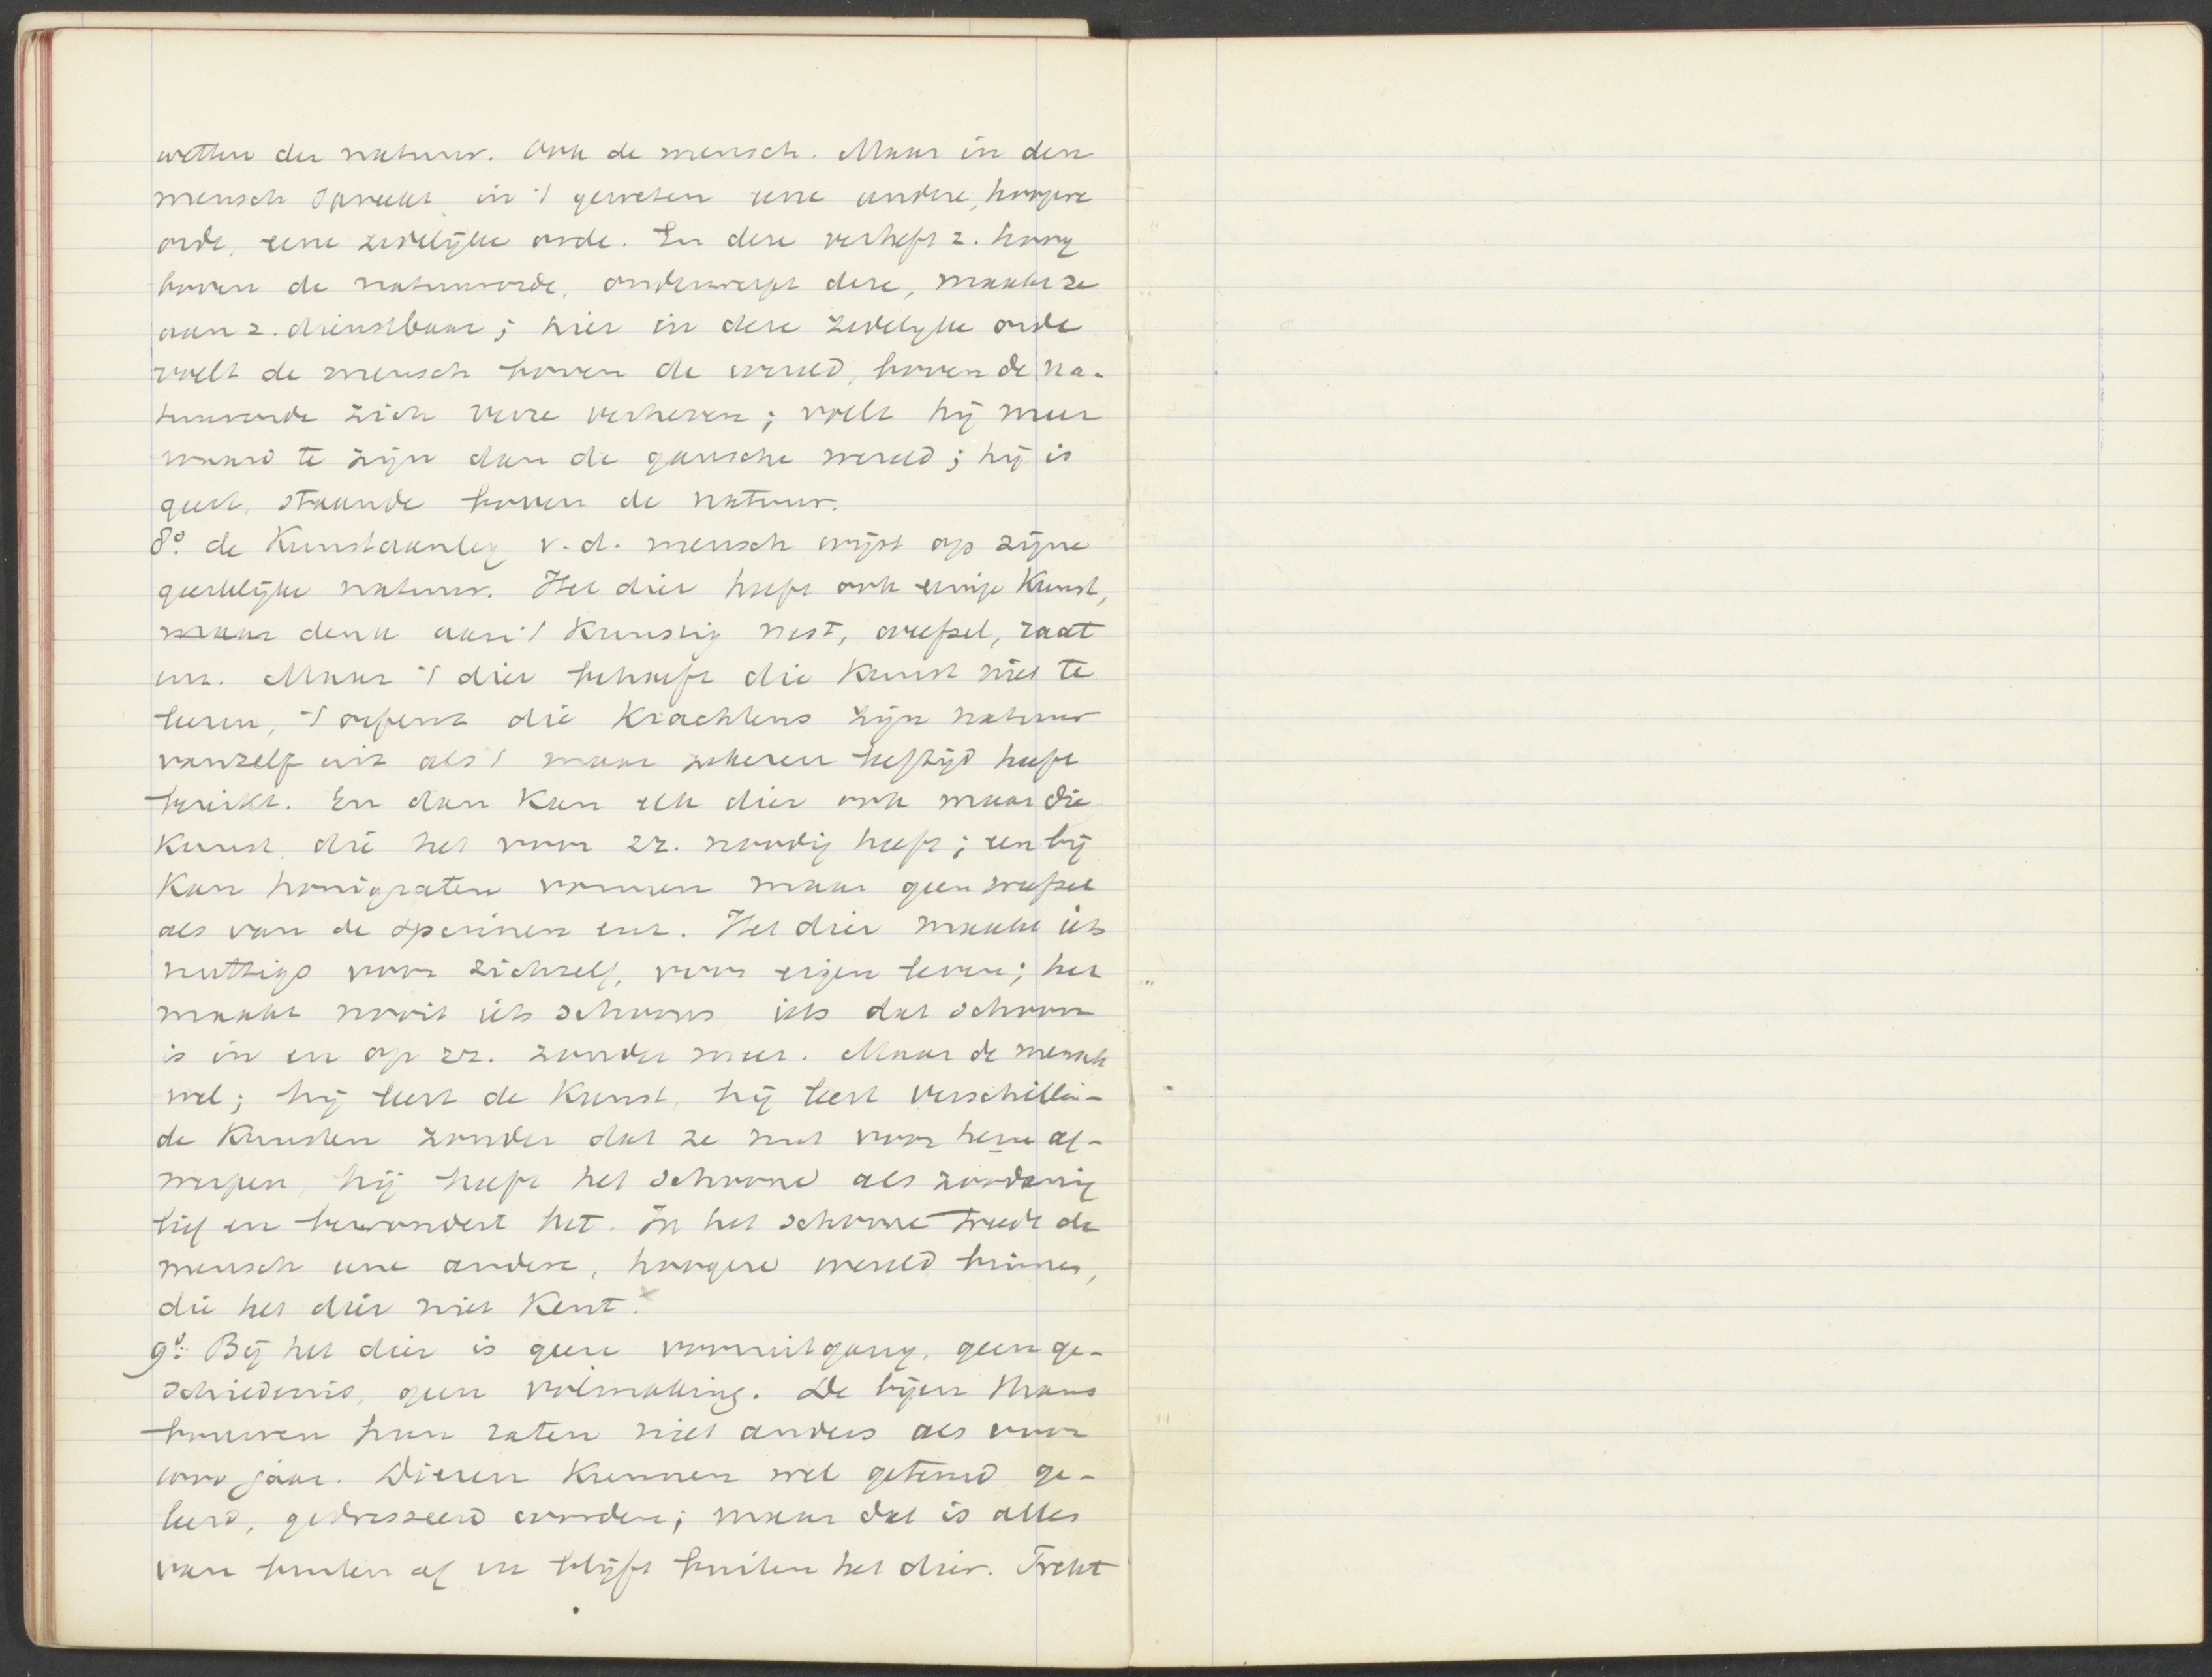 wetten der natuur. Ook de mensch. Maar in den
mensch spreekt in 't geweten eene andere, hoogere
orde, eene zedelijke orde. En deze verheft z. hoog
boven de natuurorde, onderwerpt deze, maakt ze
aan z. dienstbaar; hier in deze zedelijke orde
voelt de mensch boven de wereld, boven de na-
tuurorde zich verre verheven; voelt hij meer
waard te zijn dan de gansche wereld; hij is
geest, staande boven de natuur.
8º. de Kunstaanleg v.d. mensch wijst op zijne
geestelijke natuur. Het dier heeft ook eenige Kunst,
maar denk aan 't Kunstig nest, weefsel, raat
enz. Maar 't dier behoeft die Kunst niet te
leeren, 't oefent die Krachtens zijn natuur
vanzelf uit als 't maar zekeren leeftijd heeft
bereikt. En dan Kan elk dier ook maar die
Kunst, die het voor zz. noodig heeft; een bij
Kan honigraten vormen maar geen weefsel
als van de spinnen enz. Het dier maakt iets
nuttigs voor zichzelf, voor eigen leven; het
maakt nooit iets schoons iets dat schoon
is in en op zz. zonder meer. Maar de mensch
wel; hij leert de Kunst, hij leert verschillen-
de Kunsten zonder dat ze nut voor hem af-
werpen, hij heeft het schoone als zoodanig
lief en bewondert het. In het schoone treedt de
mensch eene andere, hoogere wereld binnen,
die het dier niet Kent. x
9º. Bij het dier is geen vooruitgang, geen ge-
schiedenis, geen volmaking. De bijen thans
bouwen hun raten niet anders als voor
1000 jaar. Dieren Kunnen wel getemd ge-
leerd, gedresseerd worden; maar dat is alles
van buiten af en blijft buiten het dier. Trekt